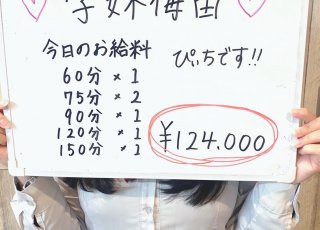 今日のお給料
ぴぃちです!!
60分 × 1
75分 × 2
90分 × 1
120分 × 1
150分 × 1
¥124.000